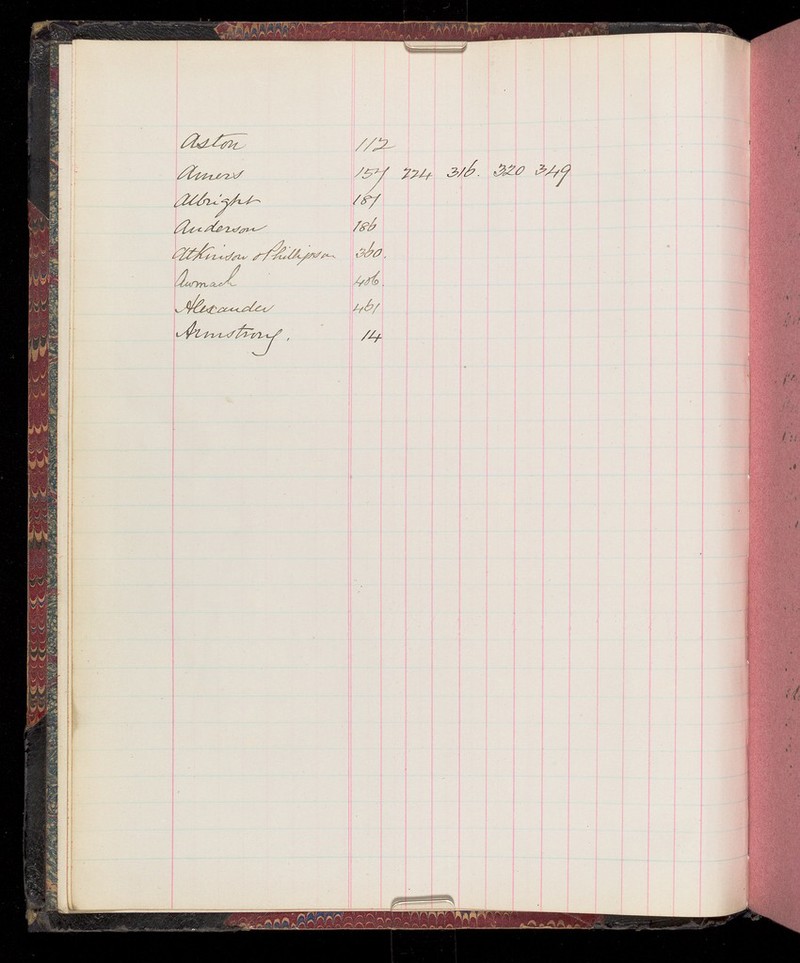 Aston 112
Amers 157 224 316. 320 349
Albright 187
Anderson 186
Atkinson & Phillipson 360.
Awmack 406.
Alexander 461
Armstrong. 14